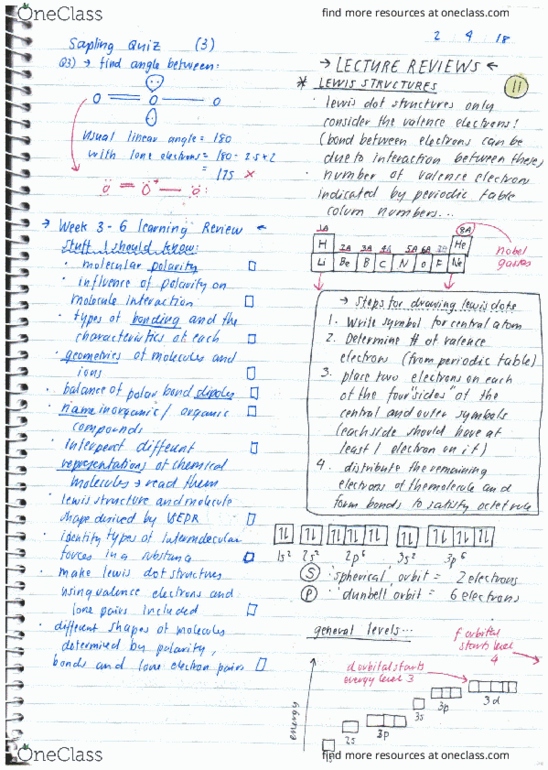 OneClass
find more resources at oneclass.com
Sapling Quiz (3)
Q3) → find angle between:
O O O
Usual linear angle = 180
with lone electrons = 180 - 2.5 × 2
= 175 ×
O = O+ — O:
→ Week 3 - 6 learning Review ←
Stuff I should know:
· molecular polarity
· influence of polarity on
molecule interaction
· types of bonding and the
characteristics of each
· geometries of molecules and
ions
· balance of polar bond dipoles
· name inorganic / organic
compounds
· interpret different
representations of chemical
molecules → read them
· lewis structure and molecule
shape derived by VSEPR
· identity types of intermolecular
forces in a substance
· make lewis dot structures
using valence electrons and
lone pairs included
· different shapes of molecules
determined by polarity,
bonds and lone electron pairs
2 4 18
→ LECTURE REVIEWS ←
* LEWIS STRUCTURES
11
· lewis dot structures only
consider the valence electrons!
(bond between electrons can be
due to interaction between these)
· number of valence electron
indicated by periodic table
column numbers...
1A 8A
H 2A 3A 4A 5A 6A He
Li Be B C N O F Ne
nobel
gasses
→ Steps for drawing lewis dots
1. Write symbol for central atom
2. Determine # of valence
electrons (from periodic table)
3. place two electrons on each
of the four "sides" of the
central and outer symbols
(each side should have at
least 1 electron on it)
4. distribute the remaining
electrons of the molecule and
form bonds to satisfy octet rule
1s2 2s2 2p6 3s2 3p6
S 'spherical' orbit = 2 electrons
P 'dunbell orbit = 6 electrons
general levels...
f orbital
starts level
4
d orbital starts
energy level 3
energy
3d
3p
3s
3p
2s
OneClass
find more resources at oneclass.com